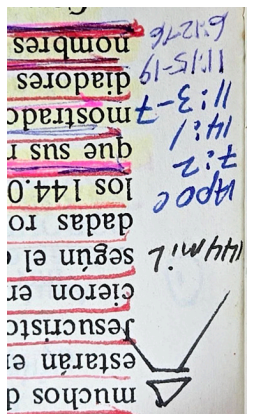 muchos d
estarán en
Jesucristo
cieron en
según el
dadas ro
los 144.0
que sus
mostrado
diadores
nombres
144 mil
Apoc
7:2
14:1
11:3-7
11:15-19
6:12-16